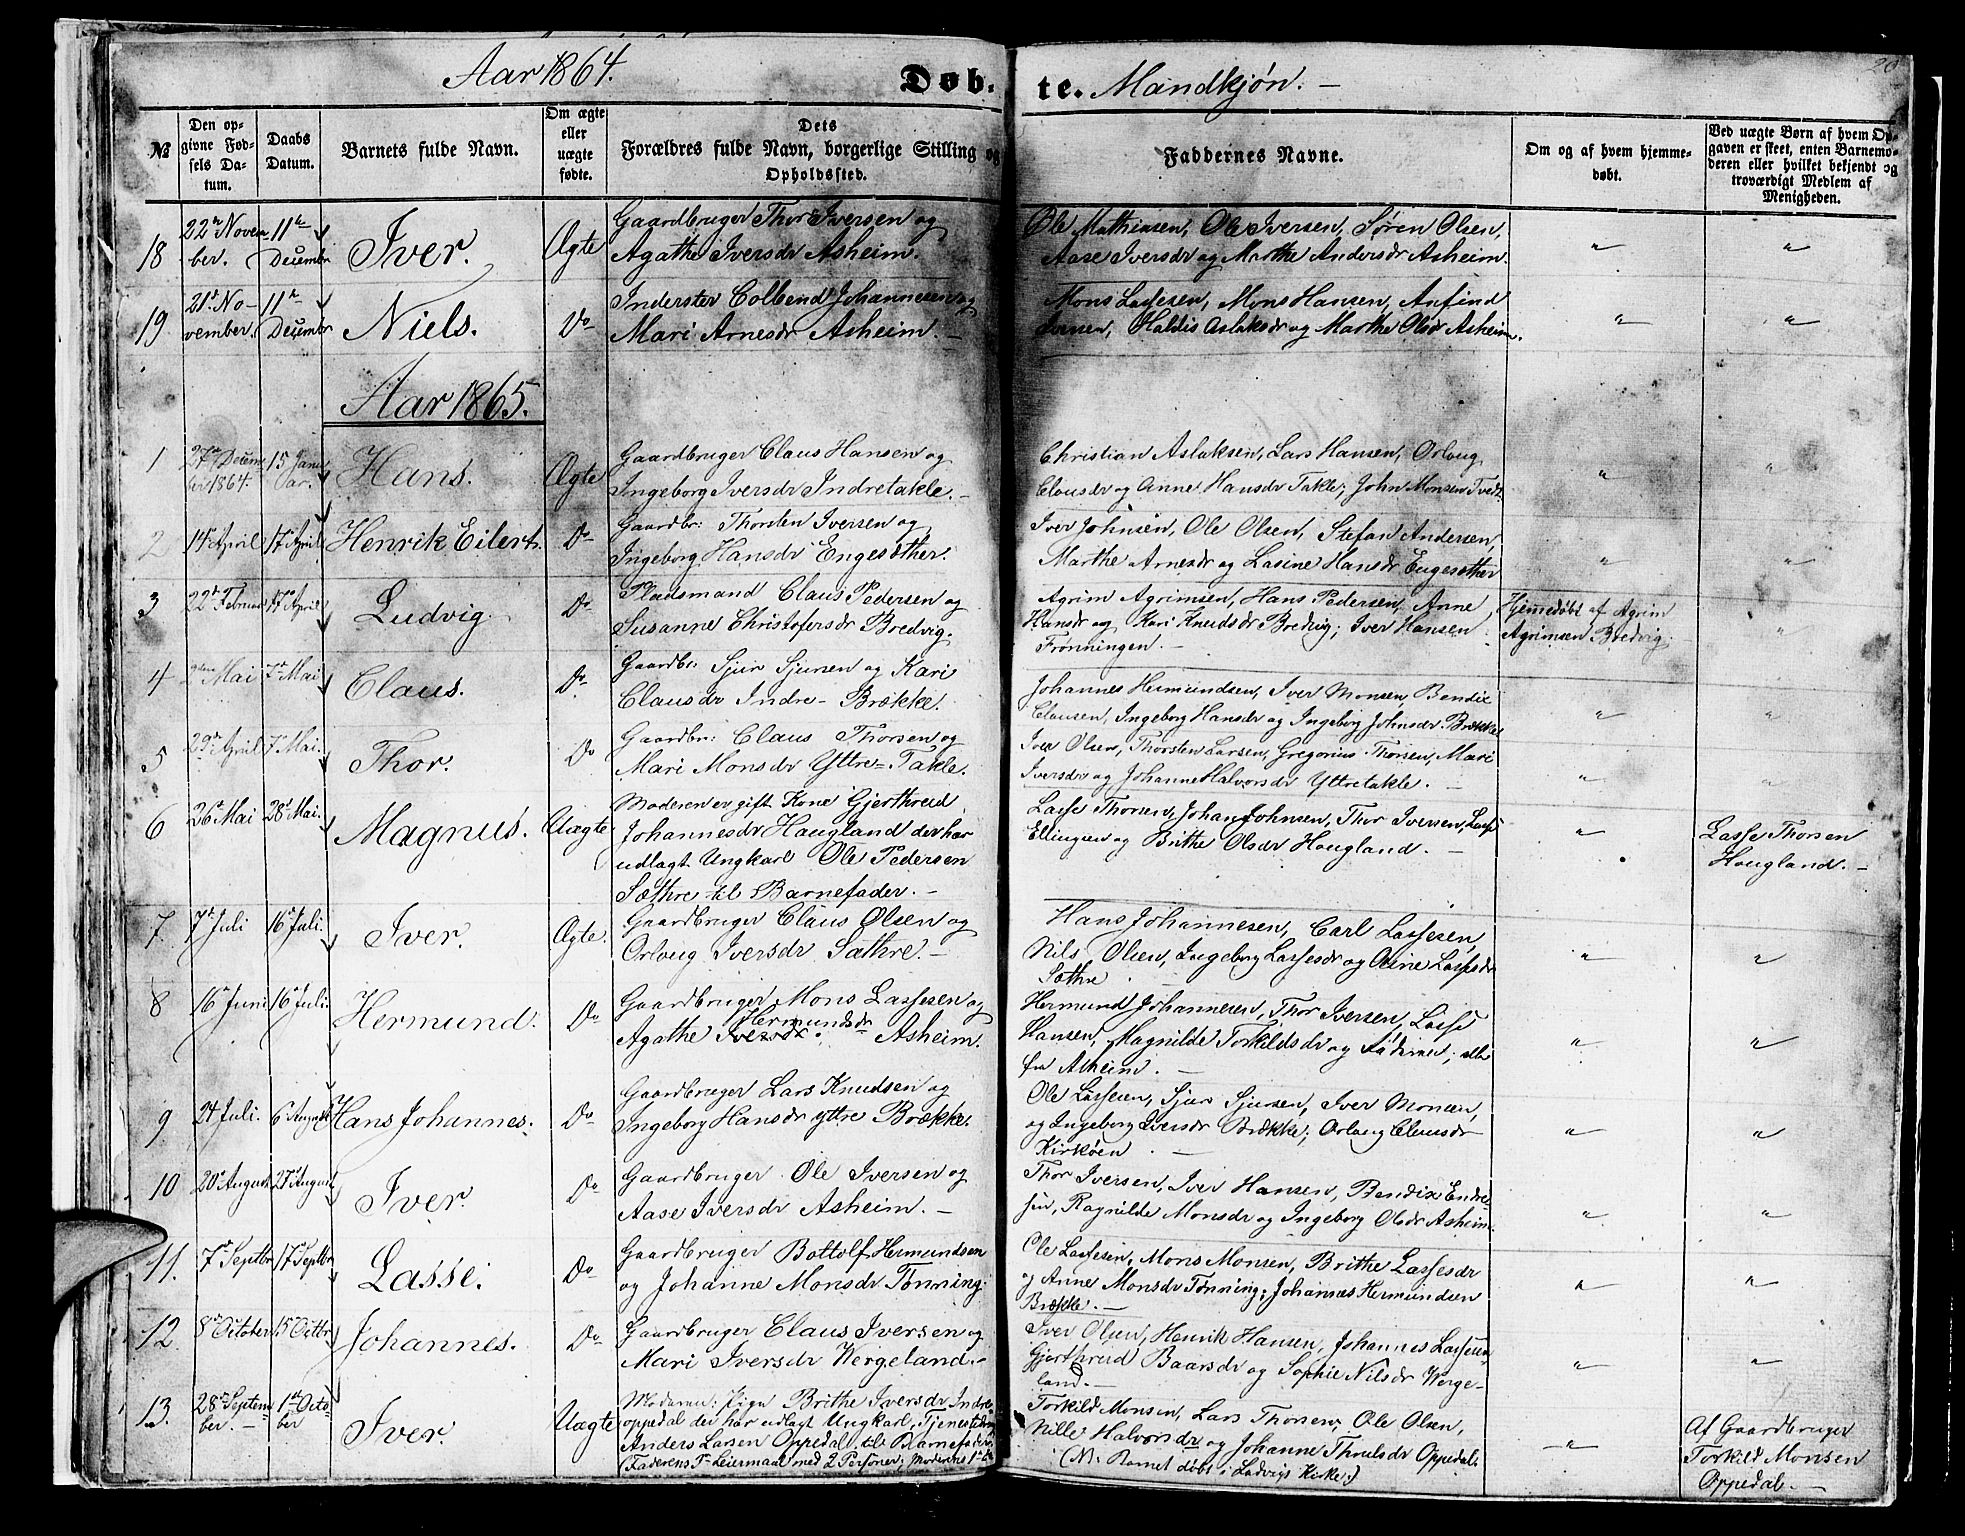 Aar 1864.
Døb-
te. Mandkjøn. —
20
№
Den op-
givne Fød-
sels Da-
tum.
Daabs
Datum.
Barnets fulde Navn.
Om ægte
eller
uægte
fødte.
Dets
Forældres fulde Navn, borgerlige Stilling og
Opholdssted.
Faddernes Navne.
Om og af hvem hjemme-
døbt.
Ved uægte Børn af hvem Op-
gaven er skeet, enten Barnemo-
deren eller hvilket bekjendt og
troværdigt Medlem af
Menigheden.
18
22de Novem
ber.
11te
Decembr
Iver.
Ægte
Gaardbruger Thor Iversen og
Agathe Iversdr Asheim.
Ole Mathiasen, Ole Iversen, Søren Olsen,
Aase Iversdr og Marthe Andersdr Asheim.
"
"
19
21de No-
vember.
11te
Decembr
Niels.
Do
Inderster Colbend Johannesen og
Mari Arnesdr Asheim. —
Mons Lassesen, Mons Hansen, Anfind
Iversen, Haldis Aslaksdr og Marthe Olsdr Asheim.
"
"
Aar 1865.
1
27de Decem
ber 1864.
15 Janu
var.
Hans.
Ægte
Gaardbruger Claus Hansen og
Ingeborg Iversdr Indretakle. —
Christian Aslaksen, Lars Hansen, Orloug
Clausdr og Anne Hansdr Takle; John Monsen Tvedt
"
"
2
14de April
17de April
Henrik Eilert.
Do
Gaardbr: Thorsten Iversen og
Ingeborg Hansdr Engesæther.
Iver Johnsen, Ole Olsen, Stefan Andersen,
Marthe Arnesdr og Lasine Hansdr Engesæther
"
"
3
22de Februar
17de April
Ludvig.
Do
Pladsmand Claus Pedersen og
Susanne Christofersdr Bredvig.
Agrim Agrimsen, Hans Pedersen, Anne
Hansdr og Kari Knudsdr Bredvig; Iver Hansen
Frønningen. —
Hjemmedøbt af Agrim
Agrimsen Bredvig.
"
4
2den Mai
7de Mai
Claus.
Do
Gaardbr: Sjur Sjursen og Kari
Clausdr Indre-Brække.
Johannes Hermundsen, Iver Monsen, Bendix
Clausen, Ingeborg Hansdr og Ingeborg Johnsdr Brække
"
"
5
29de April
7de Mai.
Thor.
Do
Gaardbr: Claus Thorsen og
Mari Monsdr Yttre-Takle.
Iver Olsen, Thorsten Larsen, Gregorius Thorsen, Mari
Iversdr og Johanne Halvorsdr Yttretakle. —
"
"
6
26de Mai
28de Mai.
Magnus.
Uægte
Moderen er gift Kone Gjerthrud
Johannesdr Haugland der har
udlagt Ungkarl Ole Pedersen
Sæthre til Barnefader. —
Lasse Thorsen, Johan Johnsen, Thor Iversen, Lasse
Ellingsen og Brithe Olsdr Hougland. —
"
Lasse Thorsen
Hougland. —
7.
7de Juli
16de Juli.
Iver.
Ægte.
Gaardbruger Claus Olsen og
Orloug Iversdr Sæthre. —
Hans Johannesen, Carl Lassesen,
Nils Olsen, Ingeborg Lassesdr og Anne Lassesdr
Sæthre
"
"
8
16de Juni
16de Juli.
Hermund.
Do
Gaardbruger Mons Lassesen og
Hermundsdr
Agathe Iversdr. Asheim.
Hermund Johannesen, Thor Iversen, Lasse
Hansen, Magnilde Torkildsdr og alle
fra Asheim. —
"
"
9
24 Juli.
6 August
Hans Johannes.
Do
Gaardbruger Lars Knudsen og
Ingeborg Hansdr yttre Brække.
Ole Lassesen, Sjur Sjursen, Iver Monsen,
og Ingeborg Iversdr Brække; Orloug Clausdr
Kirkøen —
"
"
10
20de August
27de August
Iver.
Do
Gaardbruger Ole Iversen og
Aase Iversdr Asheim. —
Thor Iversen, Iver Hansen, Bendix Endre-
sen, Ragnilde Monsdr og Ingeborg Olsdr Asheim.
"
"
11.
7de Septbr
17de Septbr
Lasse.
Do
Gaardbruger Bottolf Hermundsen
og Johanne Monsdr Tønning.
Ole Lassesen, Mons Monsen, Brithe Lassesdr
og Anne Monsdr Tønning; Johannes Hermundsen
Brække. —
"
"
12
8de October
15de Octbr
Johannes.
Do
Gaardbruger Claus Iversen og
Mari Iversdr Wergeland. —
Iver Olsen, Henrik Hansen, Johannes Lassesen
Gjerthrud Baarsdr og Sophie Nilsdr Werge-
land. —
"
"
13.
28de Septem
ber. —
1ste Octo
ber
Iver.
Uægte
Moderen: Pigen Brithe Iversdr Indre
oppedal der har udlagt Ungkarl, Tjenestedreng
Anders Larsen Oppedal til Barnefader.
(Faderens 1ste Leiermaal med 2 Personer; Moderens 1ste do
Torkild Monsen, Lars Thorsen, Ole Olsen,
Nille Halvorsdr og Johanne Throlsdr Oppedal.
(N. Barnet døbt i Ladvigs Kirke:)
"
Af Gaardbruger
Torkild Monsen
Oppedal. —